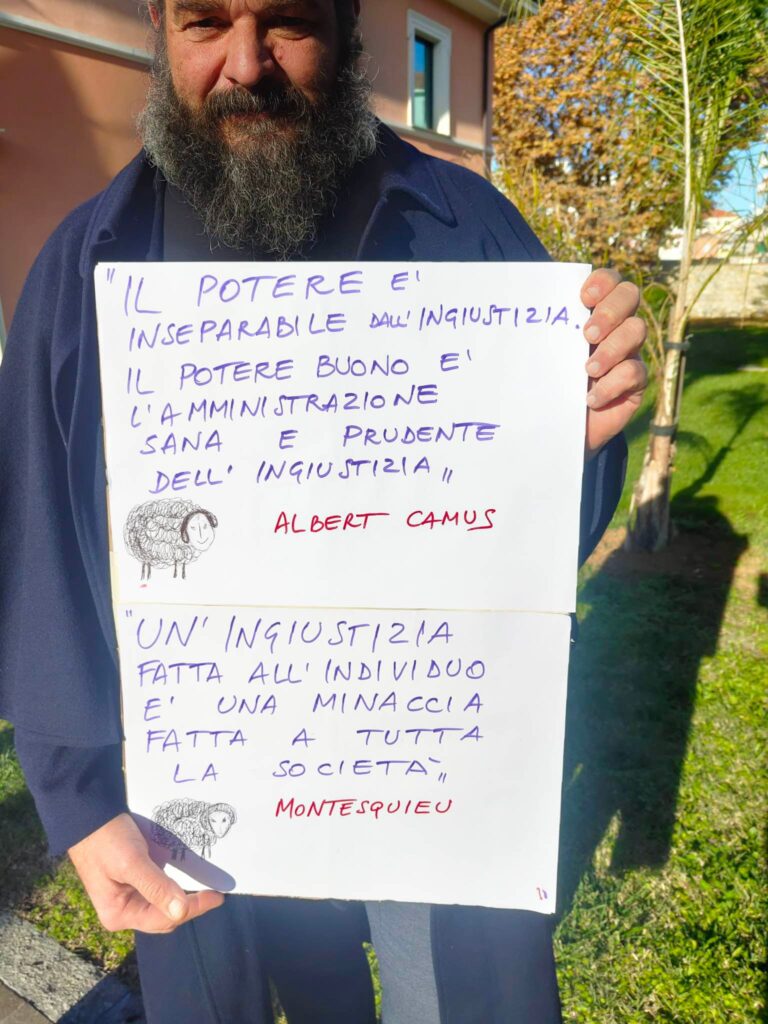 "IL POTERE E'
INSEPARABILE DALL'INGIUSTIZIA.
IL POTERE BUONO E'
L'AMMINISTRAZIONE
SANA E PRUDENTE
DELL'INGIUSTIZIA"
ALBERT CAMUS
"UN'INGIUSTIZIA
FATTA ALL'INDIVIDUO
E' UNA MINACCIA
FATTA A TUTTA
LA SOCIETÀ"
MONTESQUIEU